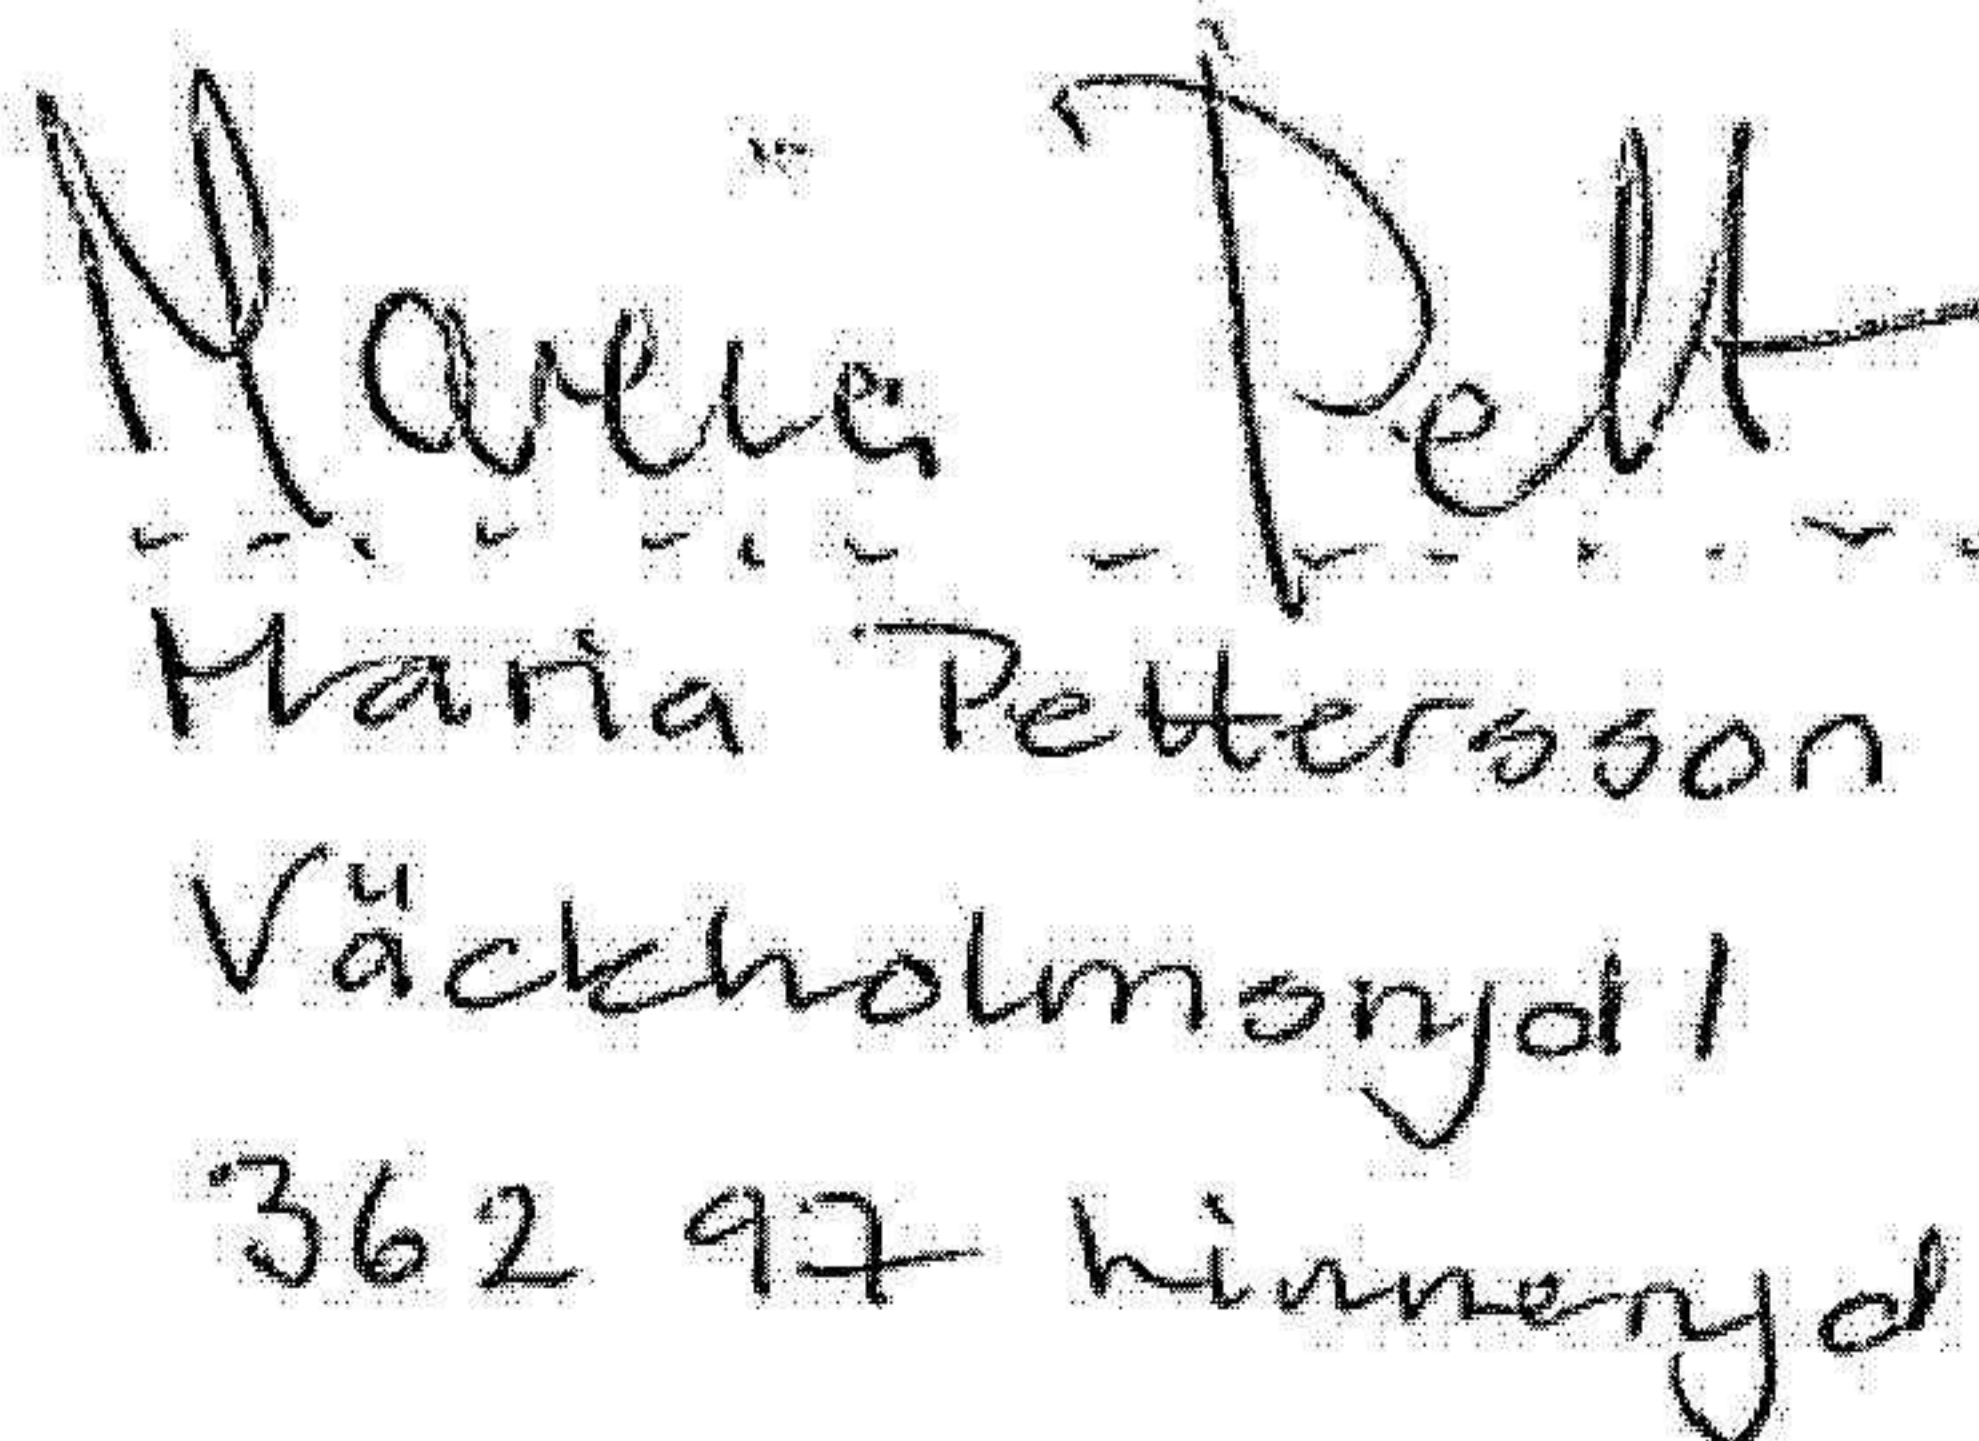 Maria Pett
Maria Pettersson
Väckholmsryd 1
362 97 Linneryd